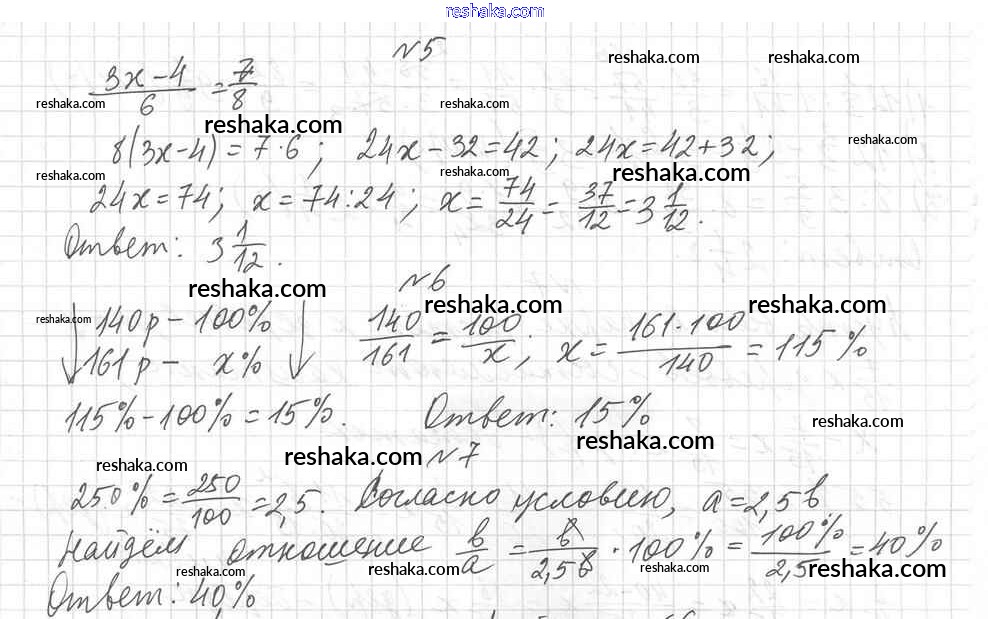 reshaka.com
№5
reshaka.com reshaka.com
(3x-4)/6 = 7/8
reshaka.com reshaka.com
reshaka.com
8(3x-4)=7·6; 24x-32=42; 24x=42+32;
reshaka.com
reshaka.com reshaka.com reshaka.com
24x=74; x=74:24; x=74/24=37/12=3 1/12.
Ответ: 3 1/12.
№6
reshaka.com reshaka.com reshaka.com
reshaka.com
↓ 140р - 100% ↓ 140/161 = 100/x; x = 161·100/140 = 115%
161р - x%
115%-100%=15%. Ответ: 15%
reshaka.com
reshaka.com
№7
reshaka.com
reshaka.com
250% = 250/100 = 2,5. Согласно условию, a=2,5b.
Найдём отношение b/a = b/2,5b · 100% = 100%/2,5 = 40%
reshaka.com reshaka.com reshaka.com reshaka.com
Ответ: 40%